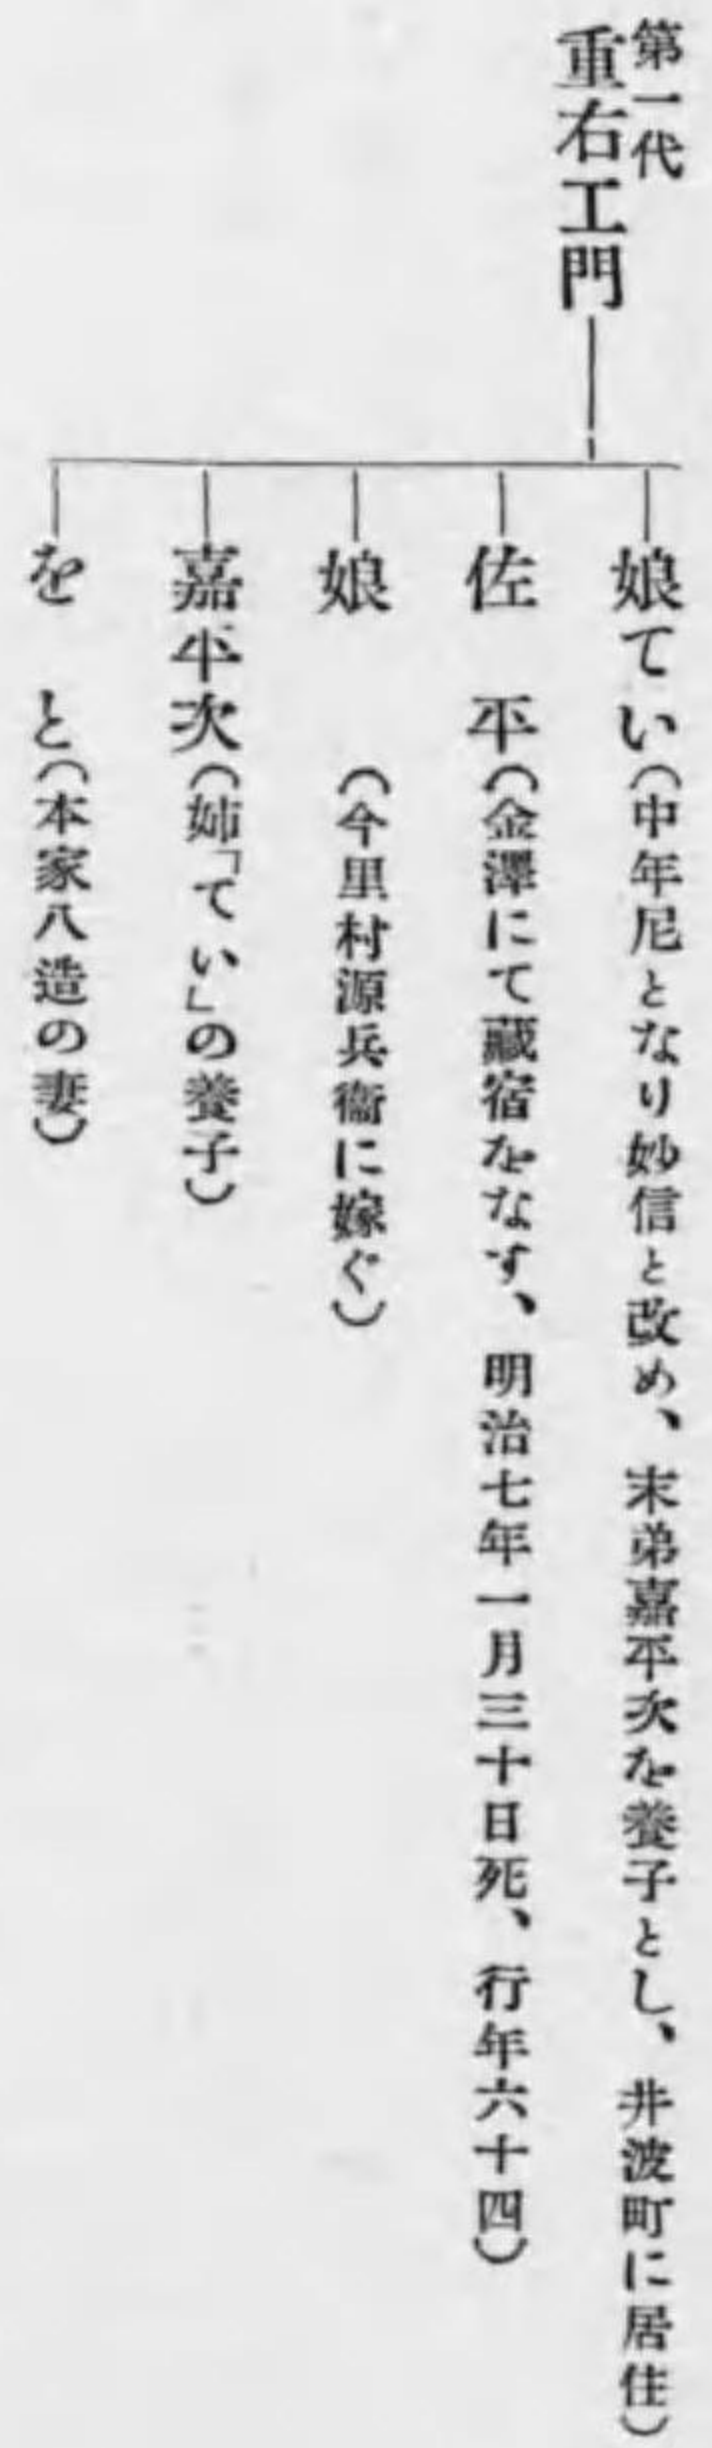 第一代
重右工門
娘てい(中年尼となり妙信と改め、末弟嘉平次を養子とし、井波町に居住)
佐平(金澤にて藏宿をなす、明治七年一月三十日死、行年六十四)
娘(今里村源兵衞に嫁ぐ)
嘉平次(姉「てい」の養子)
をと(本家八造の妻)